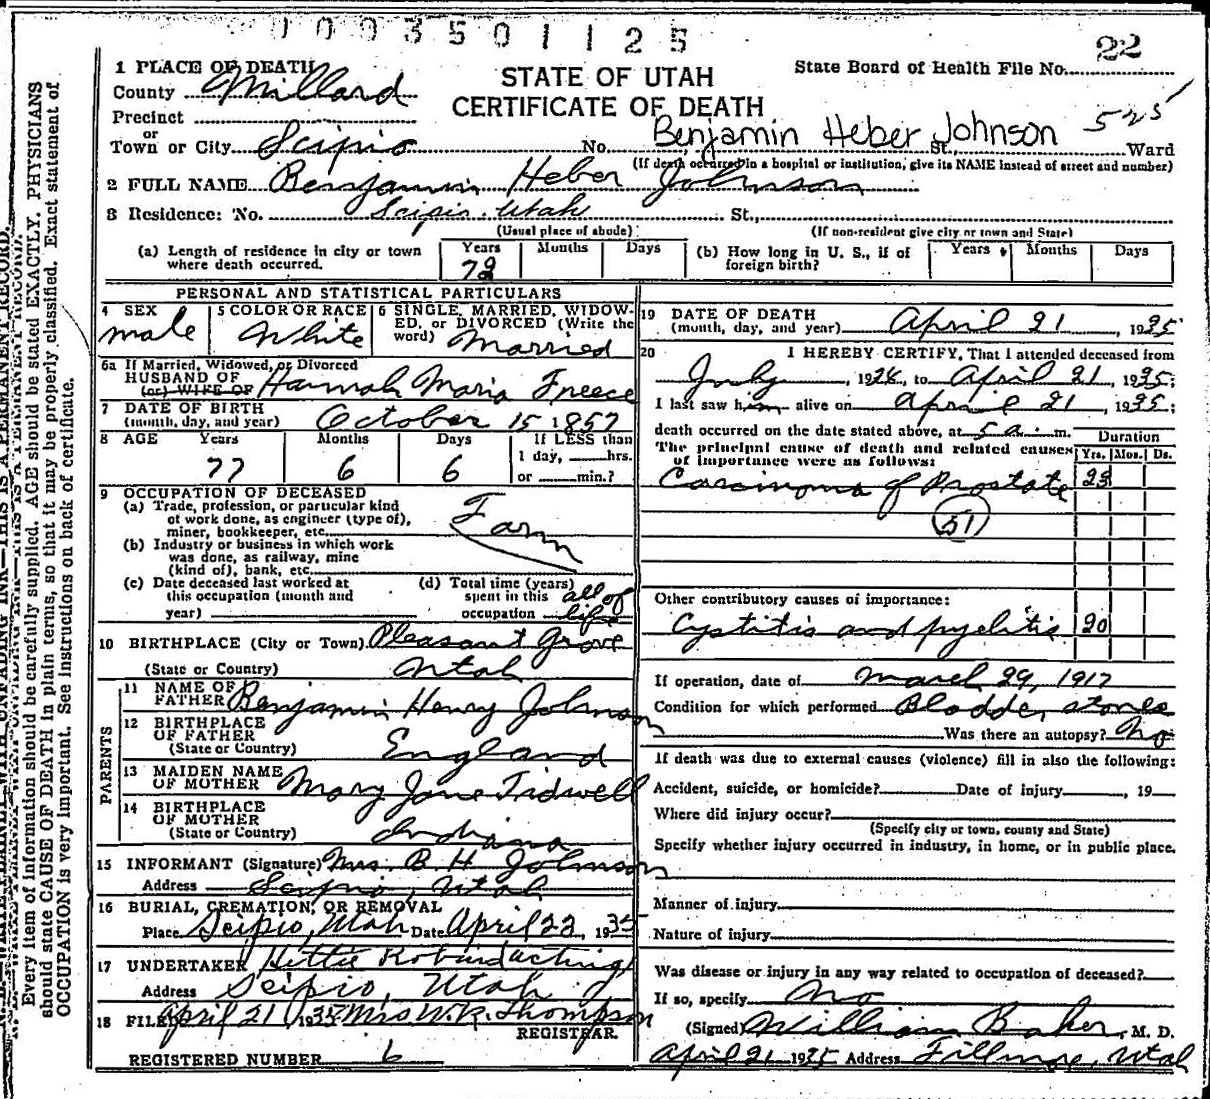 1003501125
22
1 PLACE OF DEATH
County Millard
STATE OF UTAH
CERTIFICATE OF DEATH
State Board of Health File No.
525
Precinct
or
Town or City Scipio No. Benjamin Heber Johnson St., Ward
(If death occurred in a hospital or institution, give its NAME instead of street and number)
2 FULL NAME Benjamin Heber Johnson
3 Residence: No. Scipio, Utah St.,
(Usual place of abode) (If non-resident give city or town and State)
(a) Length of residence in city or town where death occurred. Years Months Days
(b) How long in U. S., if of foreign birth? Years Months Days
PERSONAL AND STATISTICAL PARTICULARS
4 SEX
male
5 COLOR OR RACE
White
6 SINGLE, MARRIED, WIDOWED, or DIVORCED (Write the word) Married
6a If Married, Widowed, or Divorced
HUSBAND OF
(or) WIFE OF Hannah Maria Freece
7 DATE OF BIRTH
(month, day, and year) October 15 1857
8 AGE Years Months Days If LESS than
1 day, hrs.
or min.?
77 6 6
9 OCCUPATION OF DECEASED
(a) Trade, profession, or particular kind
of work done, as engineer (type of),
miner, bookkeeper, etc. Farm
(b) Industry or business in which work
was done, as railway, mine
(kind of), bank, etc.
(c) Date deceased last worked at
this occupation (month and
year)
(d) Total time (years)
spent in this
occupation all of life
10 BIRTHPLACE (City or Town) Pleasant Grove
(State or Country) Utah
PARENTS
11 NAME OF
FATHER Benjamin Henry Johnson
12 BIRTHPLACE
OF FATHER
(State or Country) England
13 MAIDEN NAME
OF MOTHER Mary Jane Tidwell
14 BIRTHPLACE
OF MOTHER
(State or Country) Indiana
15 INFORMANT (Signature) Mrs. B. H. Johnson
Address Scipio, Utah
16 BURIAL, CREMATION, OR REMOVAL
Place Scipio, Utah Date April 23, 1935
17 UNDERTAKER Hettie acting
Address Scipio, Utah
18 FILED April 21 1935 Mrs W.R. Thompson
REGISTRAR.
REGISTERED NUMBER 6
19 DATE OF DEATH
(month, day, and year) April 21, 1935
20 I HEREBY CERTIFY, That I attended deceased from
July, 1926, to April 21, 1935;
I last saw him alive on April 21, 1935;
death occurred on the date stated above, at 5 a. m.
The principal cause of death and related causes
of importance were as follows:
Duration
Yrs. Mos. Ds.
Carcinoma of Prostate
51
Other contributory causes of importance:
Cystitis and pyelitis 20
If operation, date of March 29, 1917
Condition for which performed Bladder stones
Was there an autopsy? No
If death was due to external causes (violence) fill in also the following:
Accident, suicide, or homicide? Date of injury , 19
Where did injury occur?
(Specify city or town, county and State)
Specify whether injury occurred in industry, in home, or in public place.
Manner of injury
Nature of injury
Was disease or injury in any way related to occupation of deceased?
If so, specify No
(Signed) William Baker, M. D.
April 21 1935 Address Fillmore, Utah
Every item of information should be carefully supplied. AGE should be stated EXACTLY. PHYSICIANS
should state CAUSE OF DEATH in plain terms, so that it may be properly classified. Exact statement of
OCCUPATION is very important. See instructions on back of certificate.